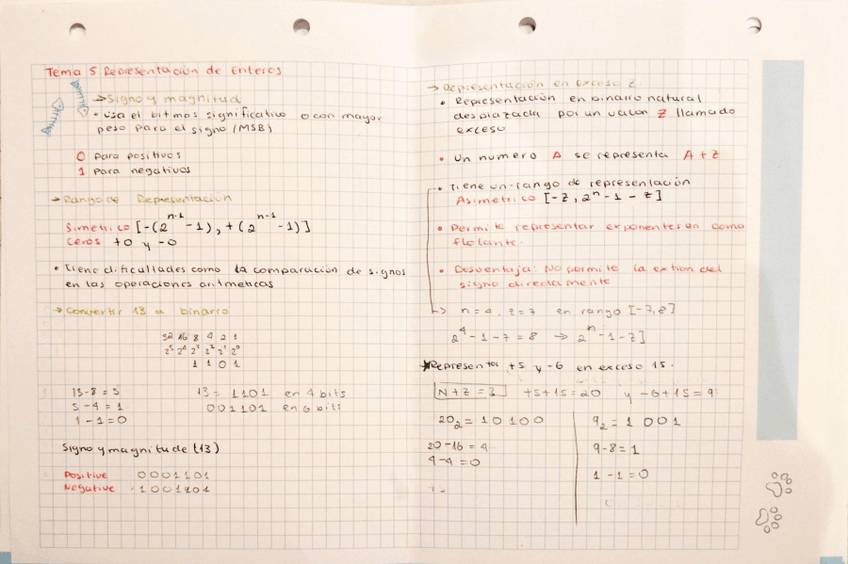 Tema 5. Representación de Enteros
→ Signo y magnitud
• Usa el bit mas significativo o con mayor
peso para el signo (MSB)
0 para positivos
1 para negativos
→ Rango de Representación
Simetrico [-(2^(n-1) -1), +(2^(n-1) -1)]
Ceros +0 y -0
• Tiene dificultades como la comparación de signos
en las operaciones aritmeticas
→ Convertir 13 a binario
32 16 8 4 2 1
2^5 2^4 2^3 2^2 2^1 2^0
1 1 0 1
13-8 = 5
5-4 = 1
1-1=0
13 = 1101 en 4 bits
001101 en 6 bits
Signo y magnitude (13)
Positive 0001101
Negative 1001101
→ Representación en Exceso Z
• Representación en binario natural
desplazada por un valor Z llamado
exceso
• Un numero A se representa A+Z
• Tiene un rango de representación
Asimetrico [-Z, 2^n -1 -Z]
• Permite representar exponentes en coma
flotante.
• Desventaja: No permite la extion del
signo directamente
→ n=4, Z=7 en rango [-7,8]
2^4 -1-7 = 8 → 2^n -1-Z]
*Representa +5 y -6 en exceso 15.
N+Z = +5+15=20 y -6+15=9
20₂ = 10100
20-16 = 4
4-4=0
9₂ = 1001
9-8=1
1-1=0